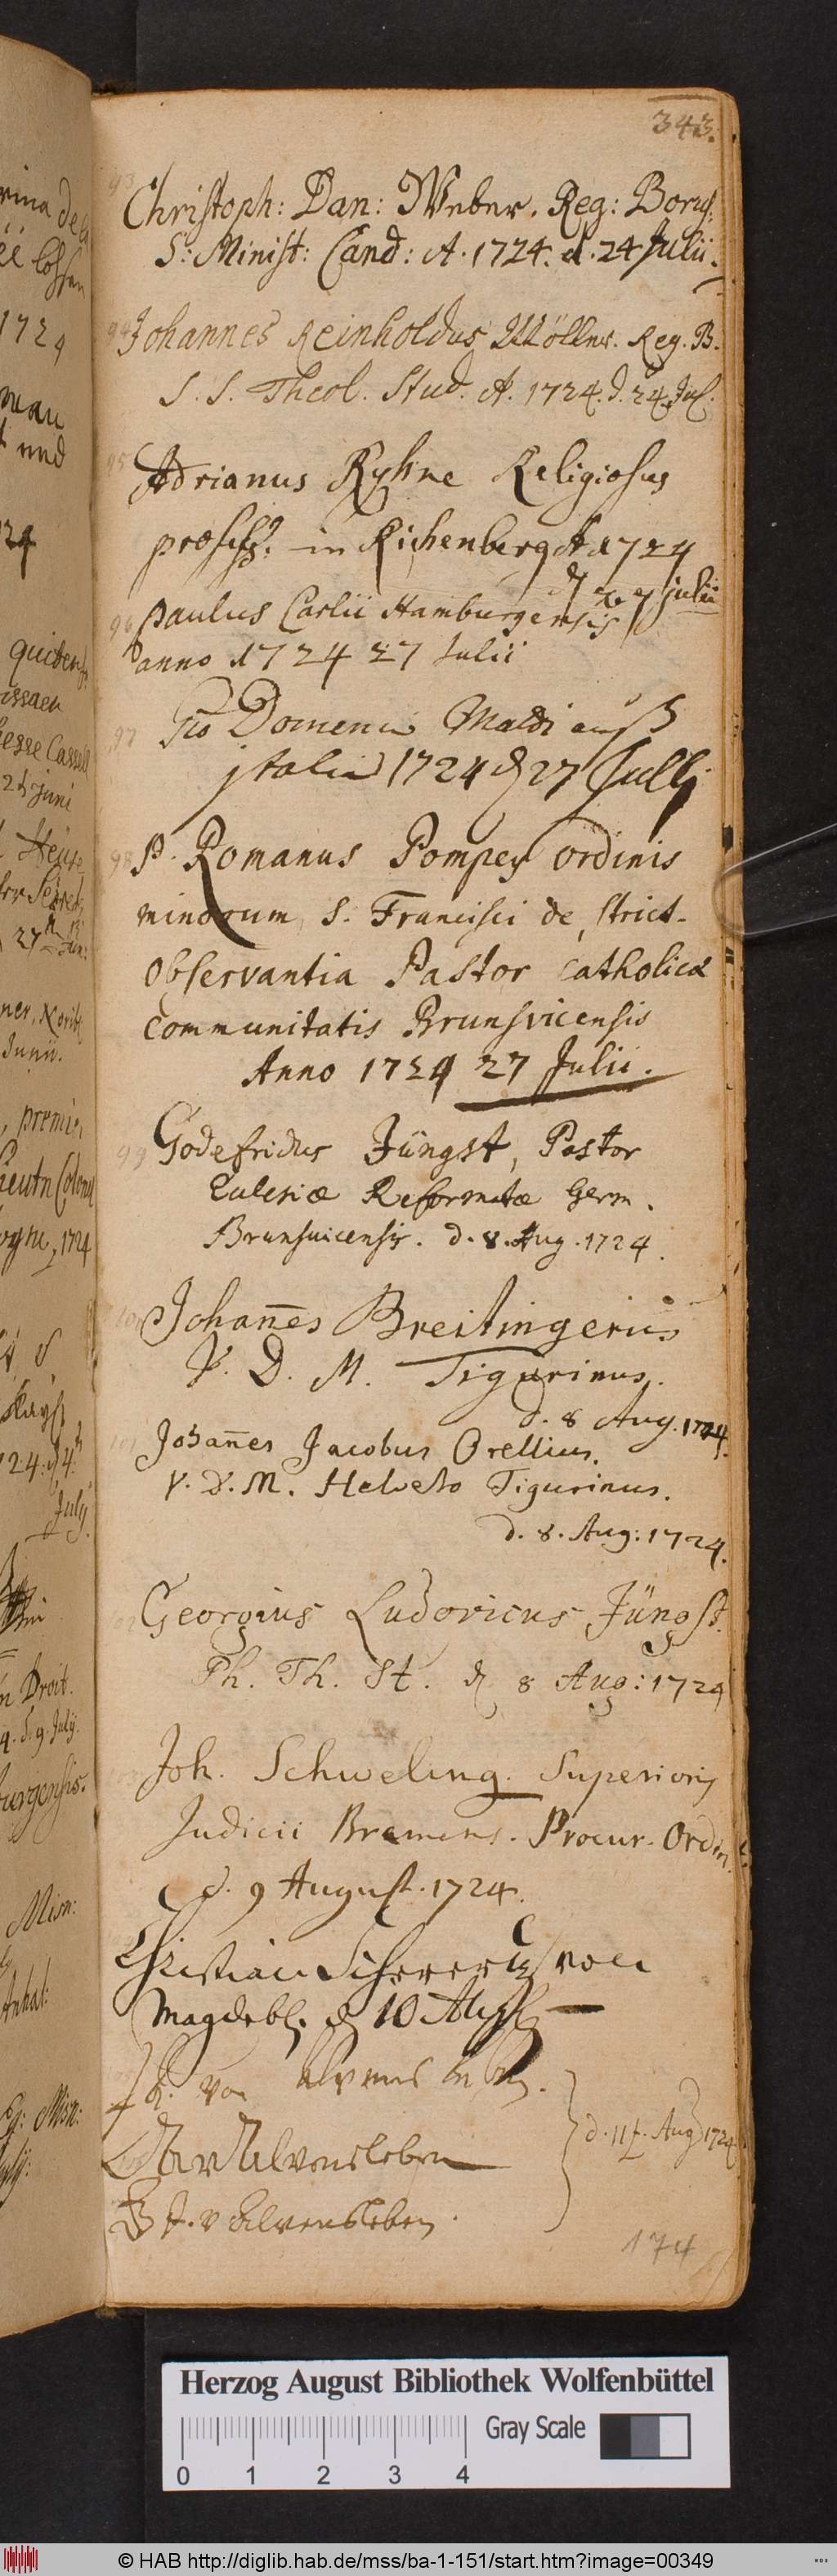 343.
93
Christoph: Dan: Weber. Reg: Boruſ:
S: Miniſt: Cand: A. 1724. d. 24 Julii.
94 Johannes Reinholdus Möller. Reg. B.
S. S. Theol. Stud. A. 1724. d. 24. Jul.
95 Adrianus Ryhne Religiosus
profeſſ. in Richenberg A 1724
d 27 julii
96 paulus Carlii Hamburgensis
anno 1724 27 Julii
97 Gio Domenic Maldi auß
jtalia 1724 d 27 Jullj
98 P. Romanus Pompey ordinis
minorum S. Franciſci de Strict.
Obſervantia Pastor Catholicæ
communitatis Brunſvicensis
Anno 1724 27 Julii.
99 Godefridus Jüngst, Pastor
Ecclesiæ Reformatæ Germ.
Brunsuicensis. d. 8. Aug. 1724.
100 Johan̄es Breitingerus
V. D. M. Tigurinus.
d. 8 Aug. 1724.
101 Johan̄es Jacobus Orellius.
V. D. M. Helveto Tigurinus.
d. 8. Aug: 1724.
Georgius Ludovicus Jüngſt.
Ph. Th. St. d 8 Aug: 1724
Joh. Schweling. Superioris
Judicii Bremens. Procur. Ordin.
d. 9 Auguſt. 1724.
Christian von
Magdeb. d 10
von Alvensleben.
d. 11t. Aug 1724
Alvensleben
v Alvensleben.
174
rina de
1724
man
und
24
quitens
Hesse Cassel
juni
27
Junii.
premier
1724
July
Droit.
9. July.
burgensis.
Misn:
Anhal:
Misn:
Herzog August Bibliothek Wolfenbüttel
Gray Scale
0 1 2 3 4
© HAB http://diglib.hab.de/mss/ba-1-151/start.htm?image=00349